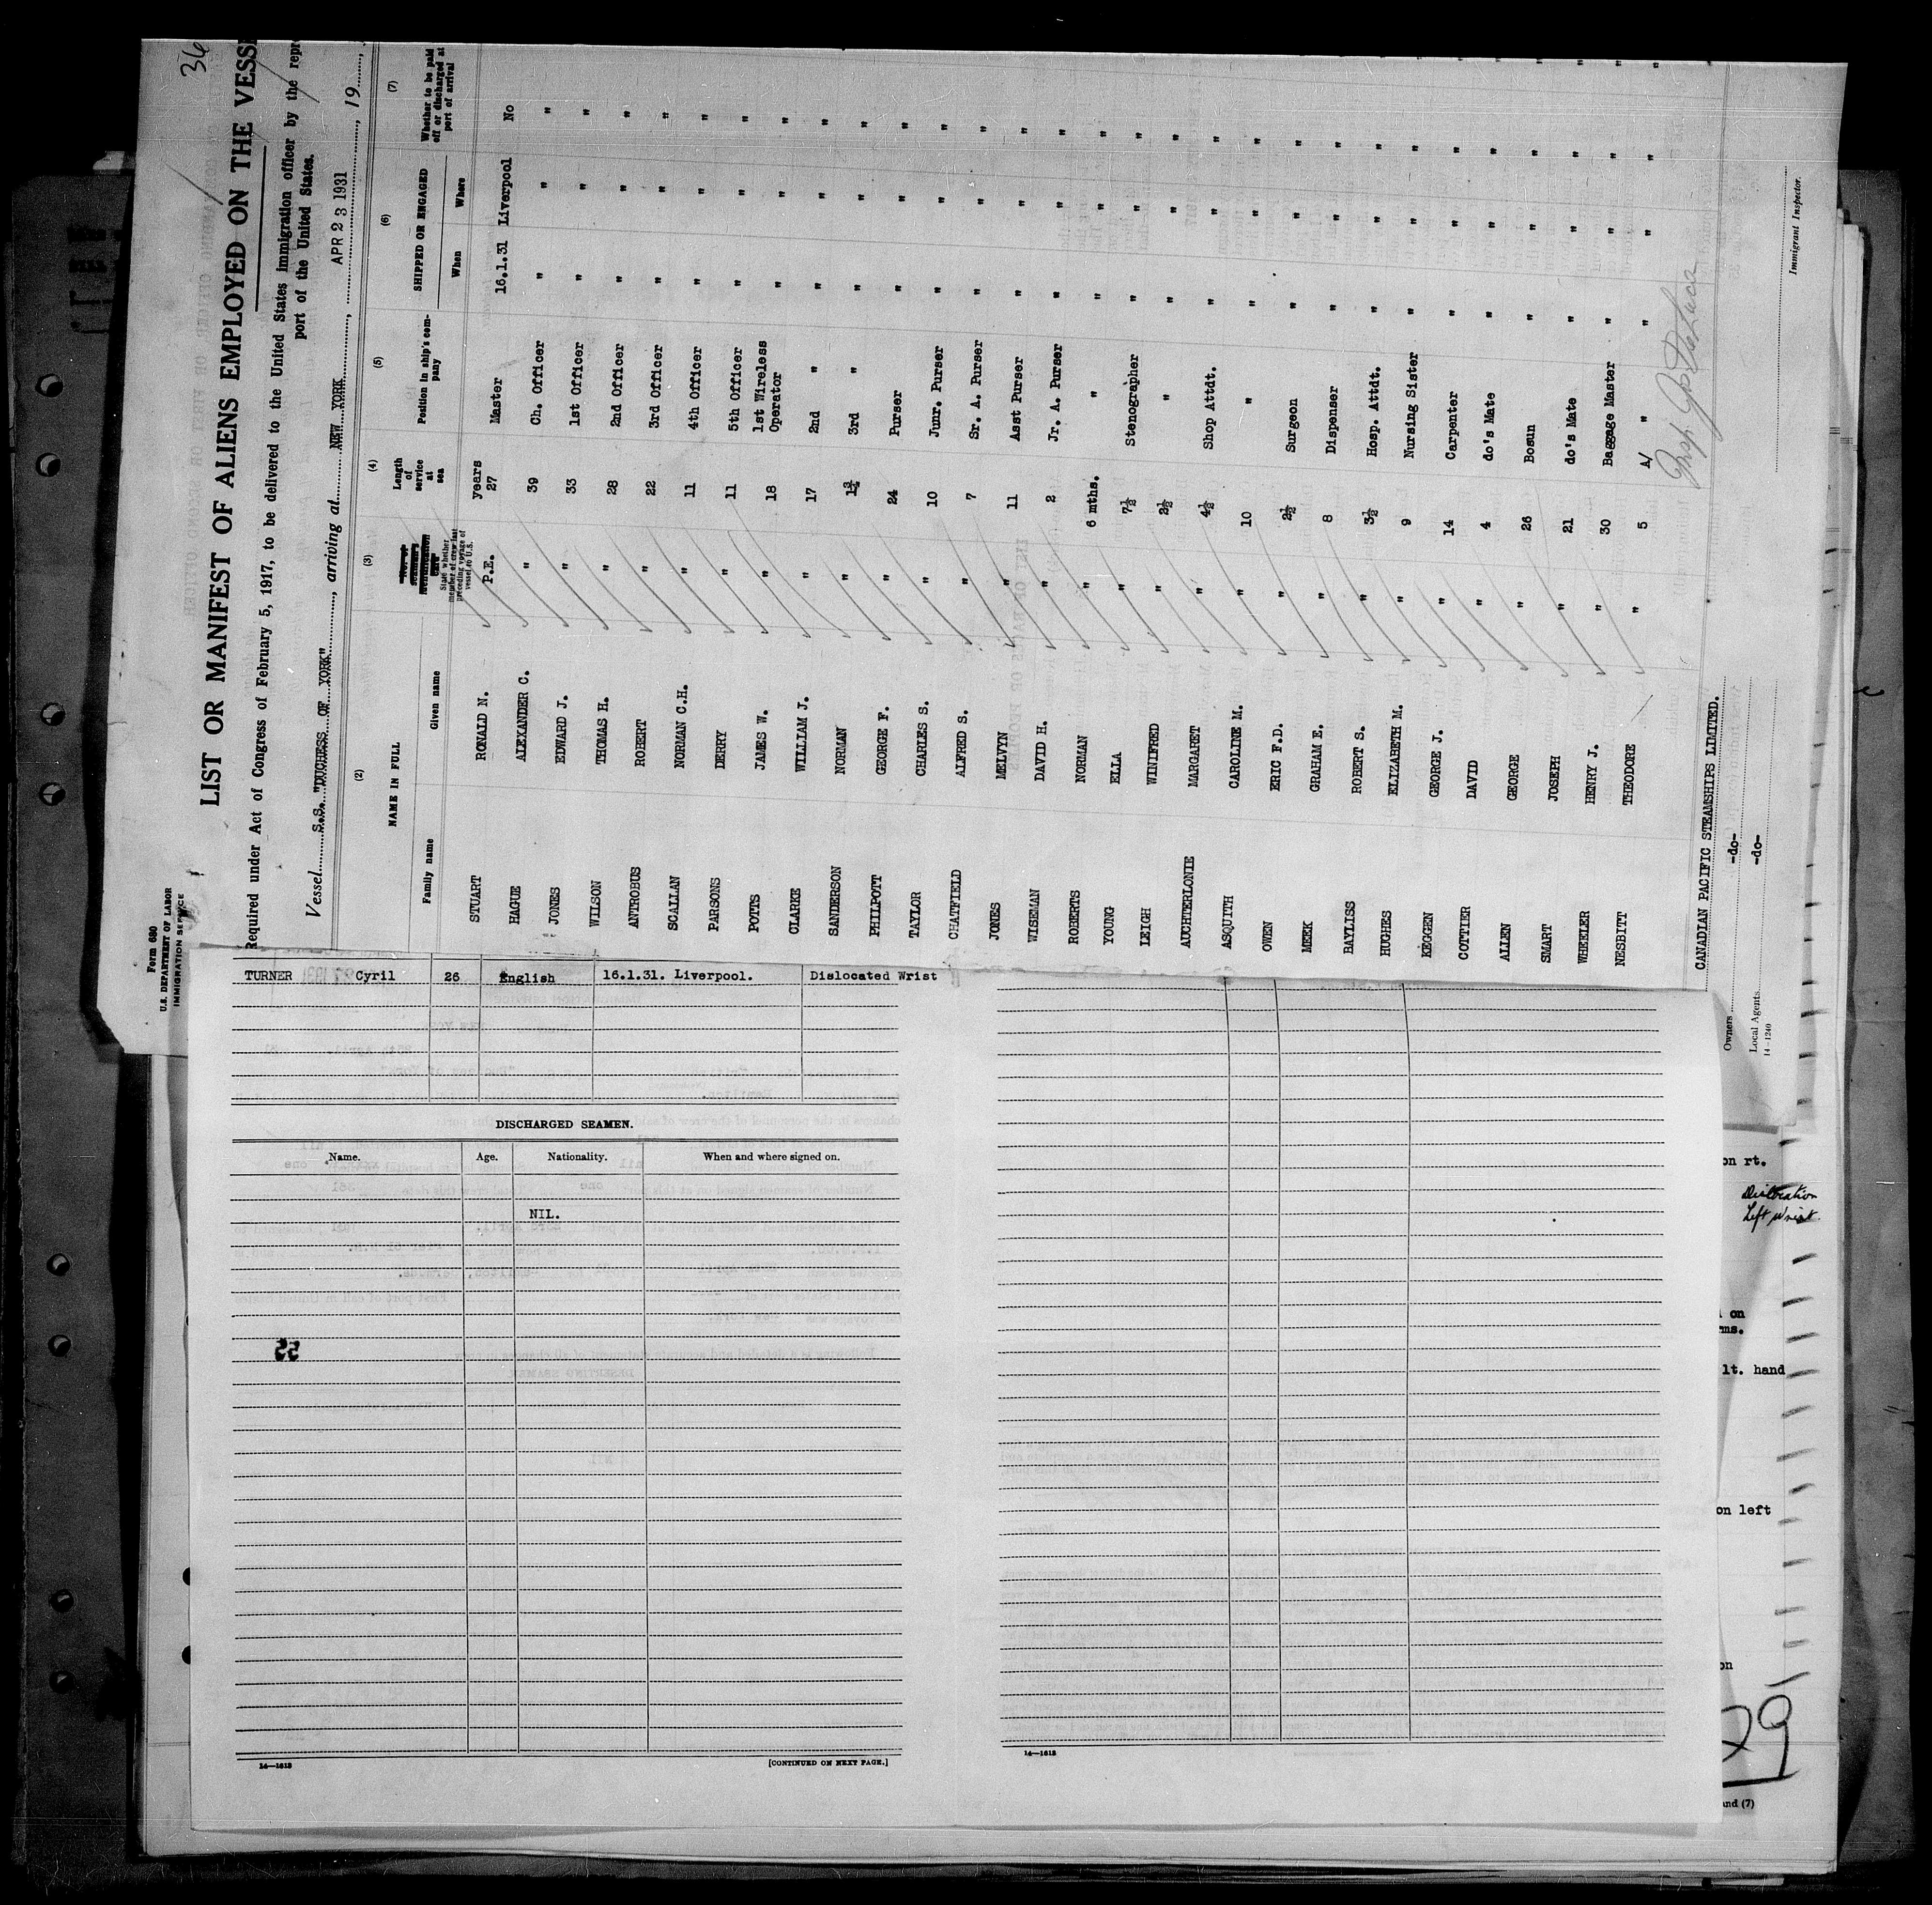 36
Form 680
U.S. DEPARTMENT OF LABOR
IMMIGRATION SERVICE
LIST OR MANIFEST OF ALIENS EMPLOYED ON THE VESS
Required under Act of Congress of February 5, 1917, to be delivered to the United States immigration officer by the repr
port of the United States.
Vessel S.S. "DUCHESS OF YORK", arriving at NEW YORK, APR 23 1931, 19
(2) (3) (4) (5) (6) (7)
NAME IN FULL
Family name Given name
State whether member of crew last preceding voyage of vessel to U.S.
Length of service at sea
Position in ship's company
SHIPPED OR ENGAGED
When Where
Whether to be paid off or discharged at port of arrival
years
STUART RONALD N. P.E. 27 Master 16.1.31 Liverpool No
HAGUE ALEXANDER C. " 39 Ch. Officer " " "
JONES EDWARD J. " 33 1st Officer " " "
WILSON THOMAS H. " 28 2nd Officer " " "
ANTROBUS ROBERT " 22 3rd Officer " " "
SCALLAN NORMAN C.H. " 11 4th Officer " " "
PARSONS DERRY " 11 5th Officer " " "
POTTS JAMES W. " 18 1st Wireless Operator " " "
CLARKE WILLIAM J. " 17 2nd " " " "
SANDERSON NORMAN " 1¾ 3rd " " " "
PHILPOTT GEORGE F. " 24 Purser " " "
TAYLOR CHARLES S. " 10 Junr. Purser " " "
CHATFIELD ALFRED S. " 7 Sr. A. Purser " " "
JONES MELVYN " 11 Asst Purser " " "
WISEMAN DAVID H. " 2 Jr. A. Purser " " "
ROBERTS NORMAN " 6 mths. " " " "
YOUNG ELLA " 7½ Stenographer " " "
LEIGH WINIFRED " 2½ " " " "
AUCHTERLONIE MARGARET " 4½ Shop Attdt. " " "
ASQUITH CAROLINE M. " 10 " " " "
OWEN ERIC F.D. " 2½ Surgeon " " "
MEEK GRAHAM E. " 8 Dispenser " " "
BAYLISS ROBERT S. " 3½ Hosp. Attdt. " " "
HUGHES ELIZABETH M. " 9 Nursing Sister " " "
KEGGEN GEORGE J. " 14 Carpenter " " "
COTTIER DAVID " 4 do's Mate " " "
ALLEN GEORGE " 26 Bosun " " "
SMART JOSEPH " 21 do's Mate " " "
WHEELER HENRY J. " 30 Baggage Master " " "
NESBITT THEODORE " 5 A/ " " " "
CANADIAN PACIFIC STEAMSHIPS LIMITED.
Owners -do-
Local Agents -do-
14-1240
Immigrant Inspector.
TURNER Cyril 26 English 16.1.31. Liverpool. Dislocated Wrist
DISCHARGED SEAMEN.
Name. Age. Nationality. When and where signed on.
NIL.
14—1613
[CONTINUED ON NEXT PAGE.]
14—1613
on rt.
Dislocation
Left Wrist.
on
ms.
lt. hand
on left
on
29
and (7)